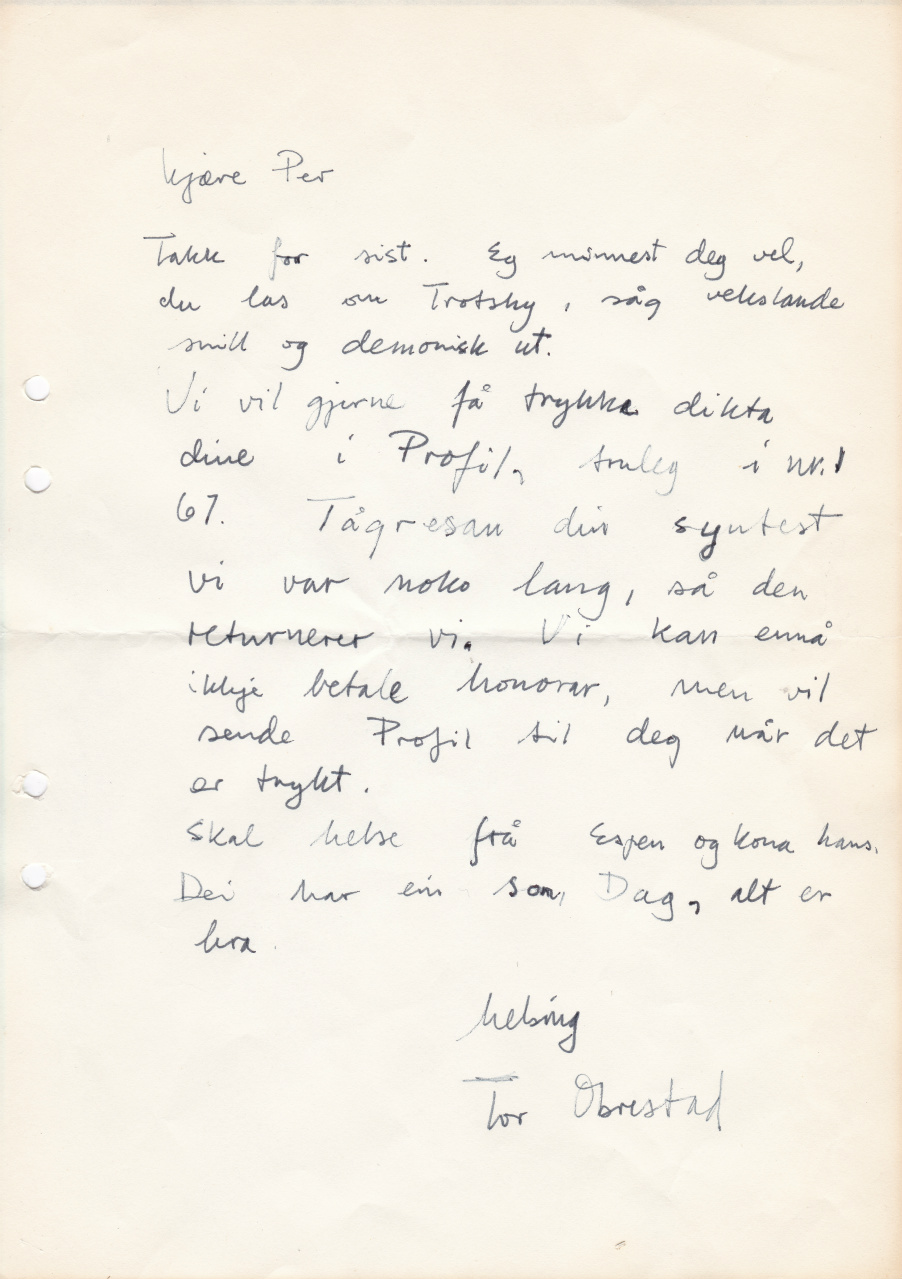 kjære Per
Takk for sist. Eg minnest deg vel,
du las om Trotsky, såg vekslande
snill og demonisk ut.
Vi vil gjerne få trykka dikta
dine i Profil, truleg i nr. 1
67. Tågresan din syntest
vi var noko lang, så den
returnerer vi. Vi kan ennå
ikkje betale honorar, men vil
sende Profil til deg når det
er trykt.
Skal helse frå Espen og kona hans.
Dei har ein son, Dag, alt er
bra.
helsing
Tor Obrestad